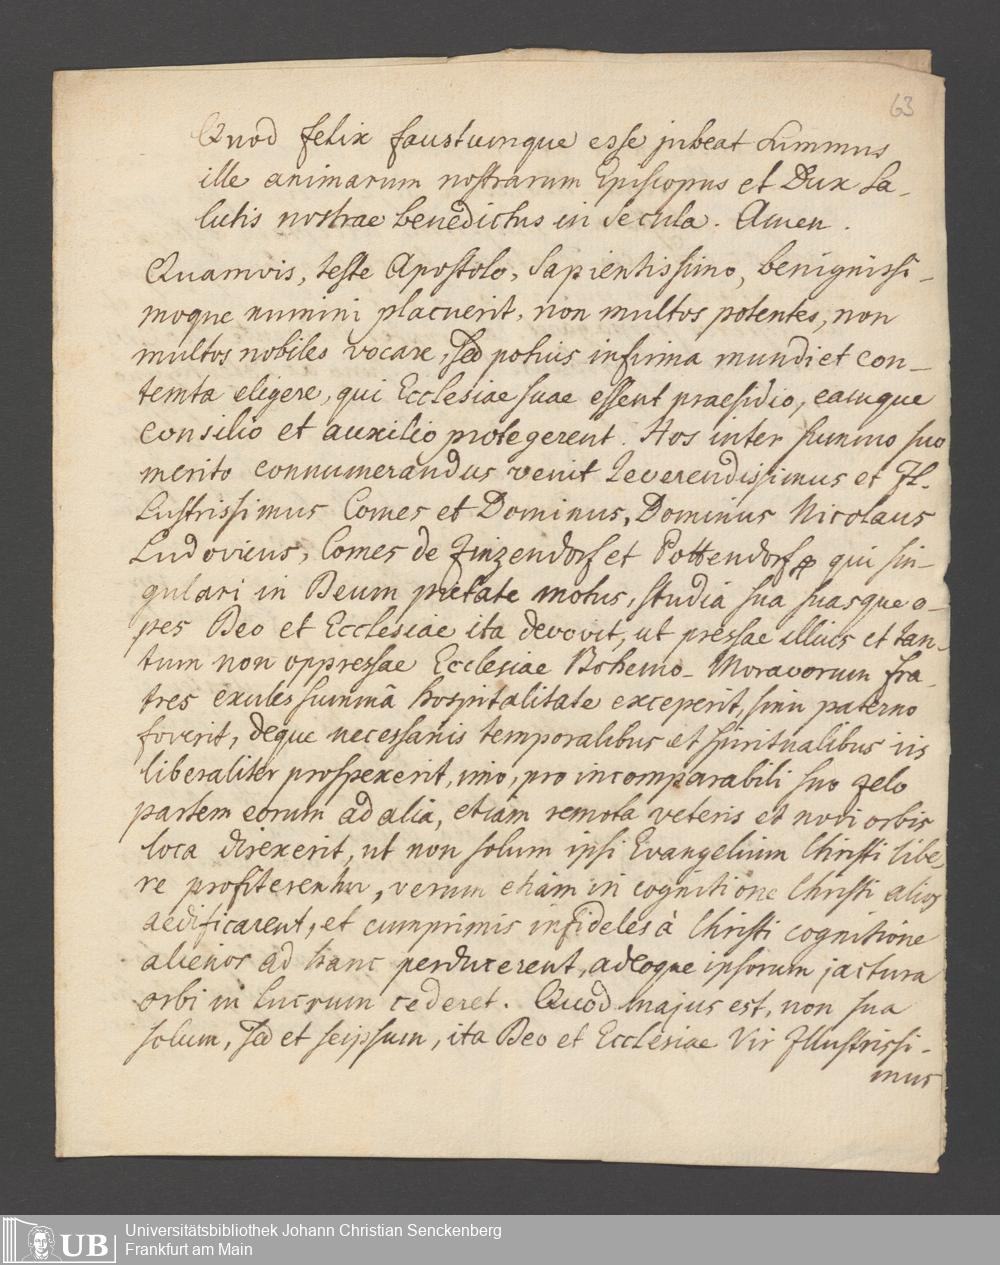 63
Quod felix faustumque esse jubeat Summus
ille animarum nostrarum Episcopus et Dux Sa-
lutis nostrae benedictus in Secula. Amen.
Quamvis, teste Apostolo, Sapientissimo, benignissi-
moque numini placuerit, non multos potentes, non
multos nobiles vocare, sed potius infirma mundi et con-
temta eligere, qui Ecclesiae suae essent praesidio, eamque
consilio et auxilio protegerent. Hos inter summo suo
merito connumerandus venit Reverendissimus et Il-
Lustrissimus Comes et Dominus, Dominus Nicolaus
Ludovicus, Comes de Zinzendorf et Pottendorf qui sin-
gulari in Deum pietate motus, studia sua suasque o-
pes Deo et Ecclesiae ita devovit, ut pressae illius et tan-
tum non oppressae Ecclesiae Bohemo-Moravorum fra-
tres exules summâ hospitalitate exceperit, sinu paterno
foverit, deque necessariis temporalibus et spiritualibus iis
liberaliter prospexerit, imo, pro incomparabili suo zelo
partem eorum ad alia, etiam remota veteris et novi orbis
loca direxerit, ut non solum ipsi Evangelium Christi libe
re profiterentur, verum etiam in cognitione Christi alios
aedificarent, et cumprimis infideles à Christi cognitione
alienos ad hanc perducerent, adeoque ipsorum jactura
orbi in lucrum cederet. Quod majus est, non sua
solum, sed et seipsum, ita Deo et Ecclesiae Vir Illustrissi-
mus
UB
Universitätsbibliothek Johann Christian Senckenberg
Frankfurt am Main